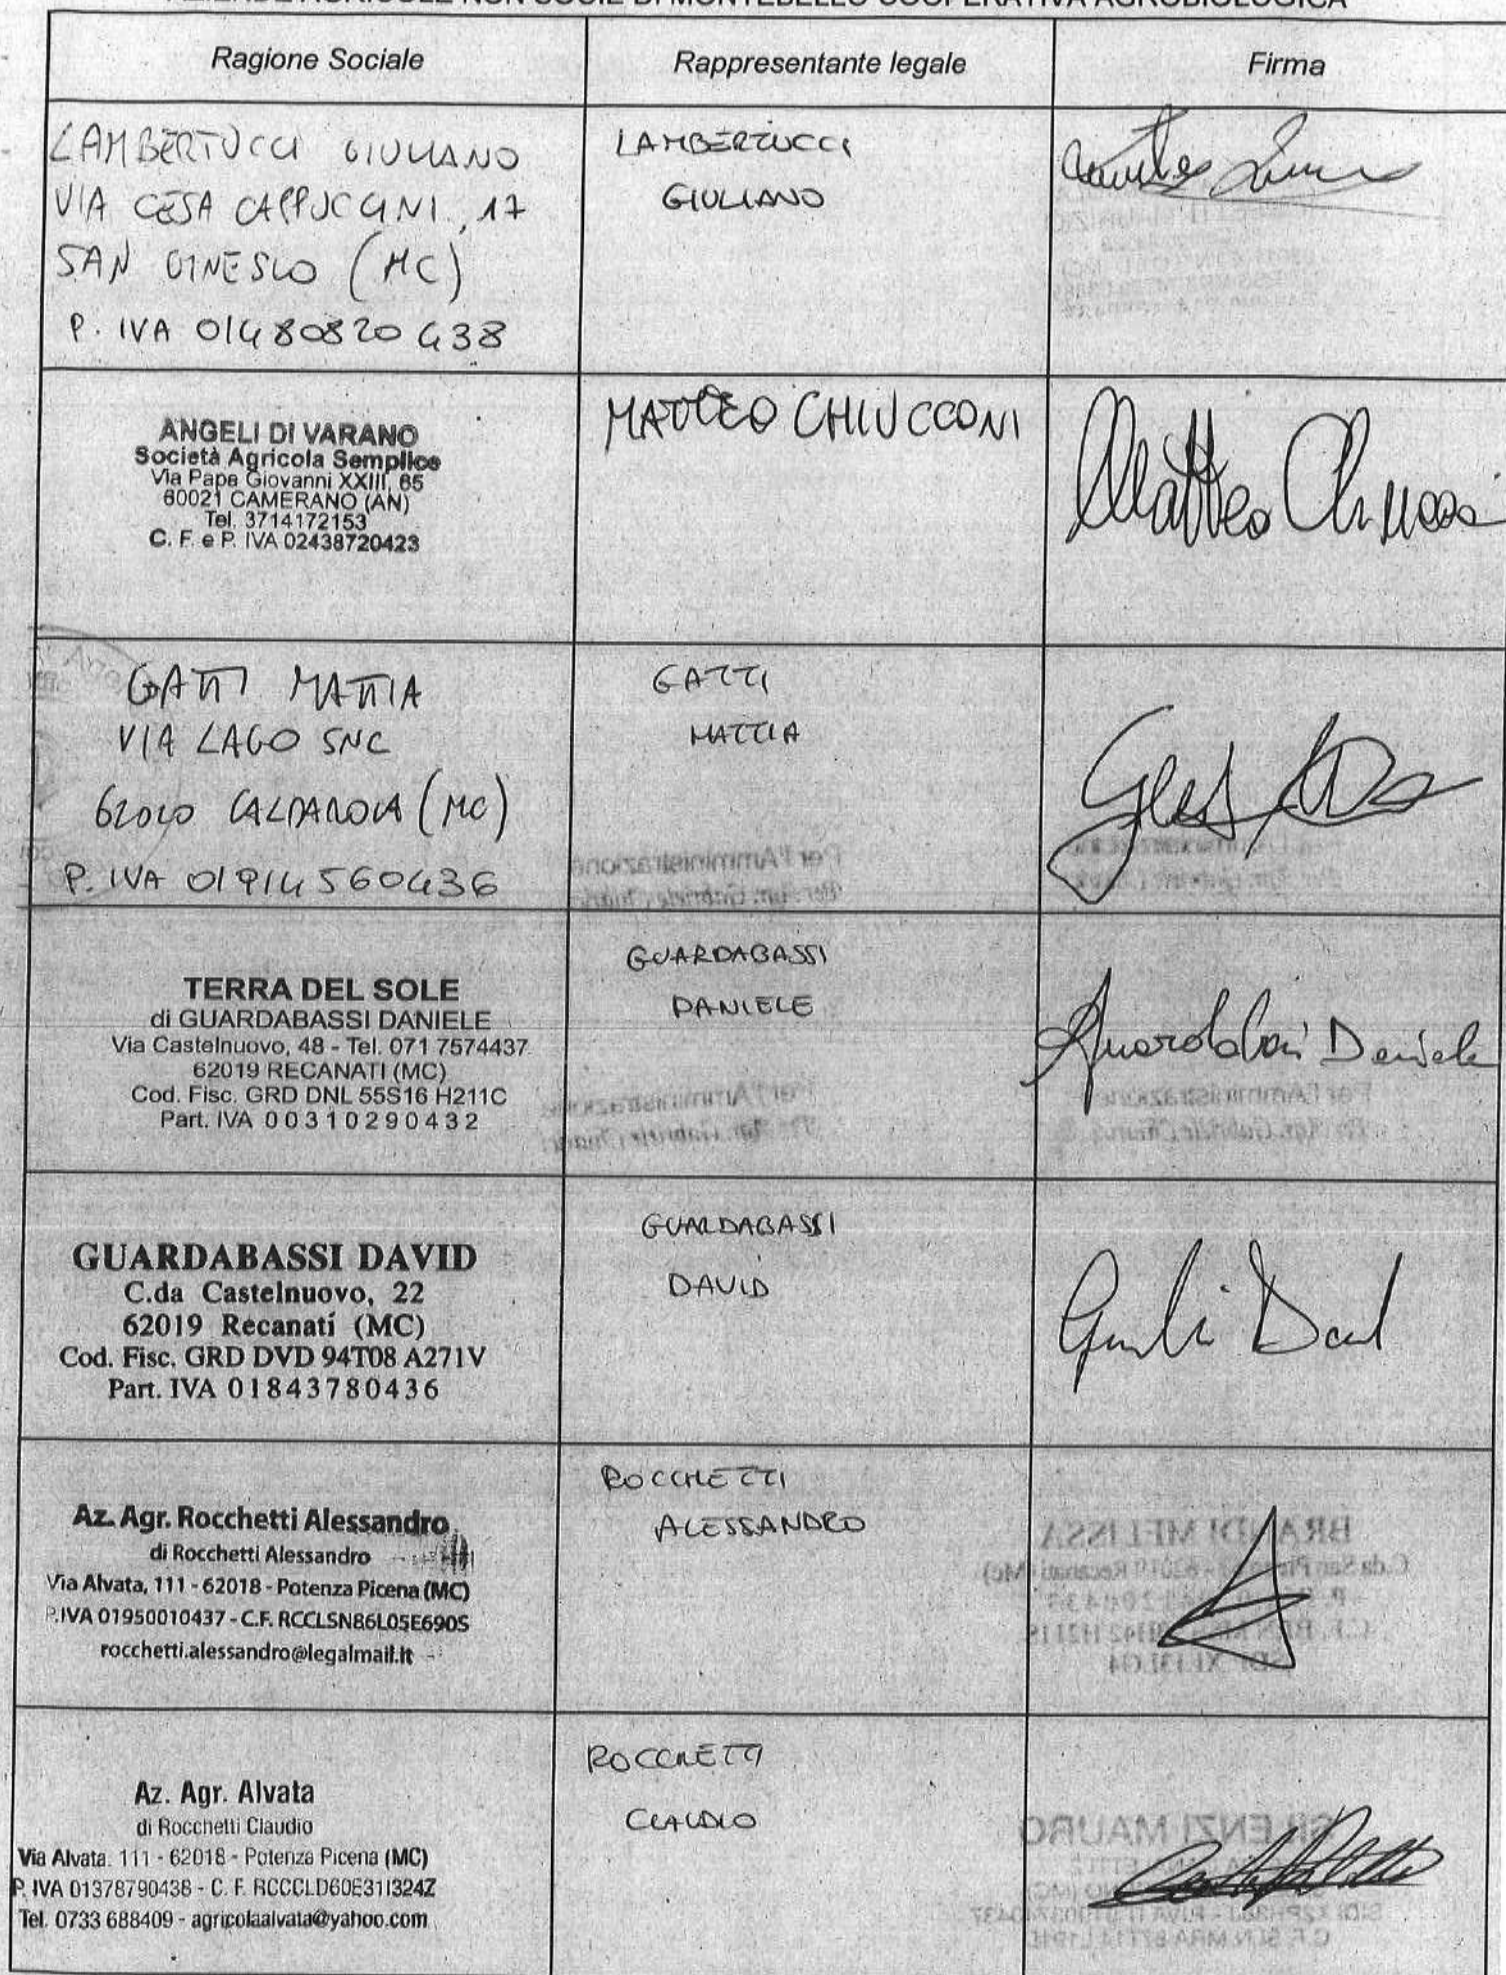 AZIENDE AGRICOLE NON SOCIE DI MONTEBELLO COOPERATIVA AGROBIOLOGICA
Ragione Sociale
Rappresentante legale
Firma
LAMBERTUCCI GIULIANO
VIA CESA CAPPUCCINI, 17
SAN GINESIO (MC)
P. IVA 01480820438
LAMBERTUCCI
GIULIANO
ANGELI DI VARANO
Società Agricola Semplice
Via Papa Giovanni XXIII, 65
60021 CAMERANO (AN)
Tel. 3714172153
C. F. e P. IVA 02438720423
MATTEO CHIUCCONI
Matteo Chiucconi
GATTI MATTIA
VIA LAGO SNC
62020 CALDAROLA (MC)
P. IVA 01914560436
GATTI
MATTIA
TERRA DEL SOLE
di GUARDABASSI DANIELE
Via Castelnuovo, 48 - Tel. 071 7574437
62019 RECANATI (MC)
Cod. Fisc. GRD DNL 55S16 H211C
Part. IVA 00310290432
GUARDABASSI
DANIELE
Guardabassi Daniele
GUARDABASSI DAVID
C.da Castelnuovo, 22
62019 Recanati (MC)
Cod. Fisc. GRD DVD 94T08 A271V
Part. IVA 01843780436
GUARDABASSI
DAVID
Az. Agr. Rocchetti Alessandro
di Rocchetti Alessandro
Via Alvata, 111 - 62018 - Potenza Picena (MC)
P.IVA 01950010437 - C.F. RCCLSN86L05E690S
rocchetti.alessandro@legalmail.it
ROCCHETTI
ALESSANDRO
Az. Agr. Alvata
di Rocchetti Claudio
Via Alvata. 111 - 62018 - Potenza Picena (MC)
P. IVA 01378790438 - C. F. RCCCLD60E31I324Z
Tel. 0733 688409 - agricolaalvata@yahoo.com
ROCCHETTI
CLAUDIO